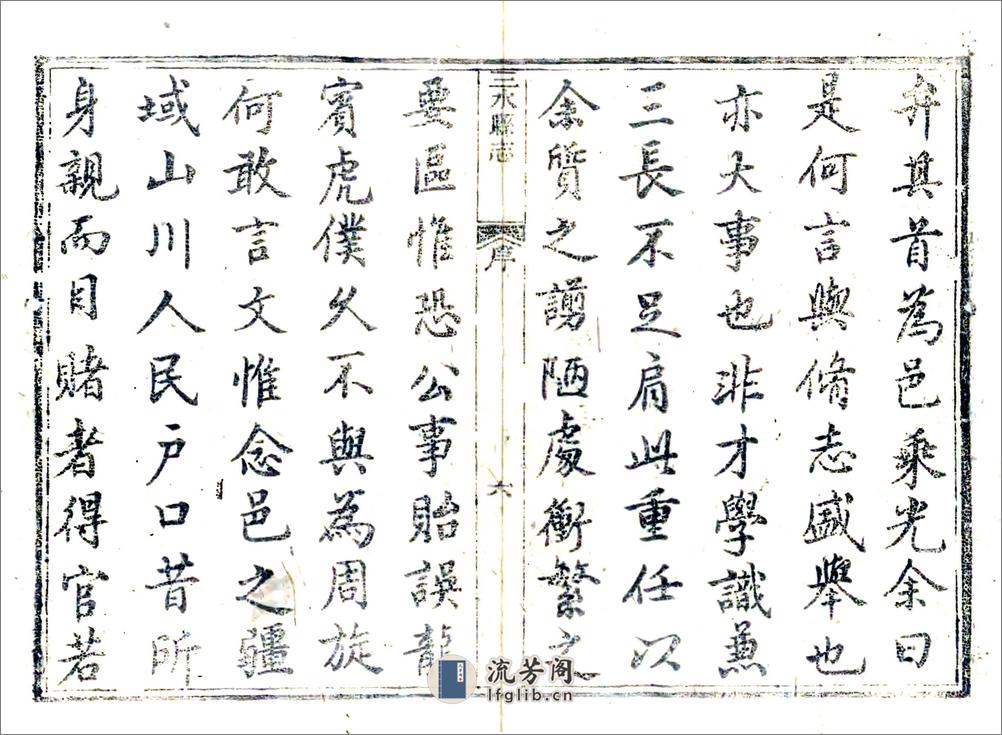 弁其首為邑乘光余曰
是何言與脩志盛舉也
亦大事也非才學識兼
三長不足肩此重任以
余質之謭陋處衝繁之
三水縣志
序
六
要區惟恐公事貽誤龍
賓虎僕久不與為周旋
何敢言文惟念邑之疆
域山川人民戶口昔所
身親而目賭者得官若
流芳阁
lfglib.cn